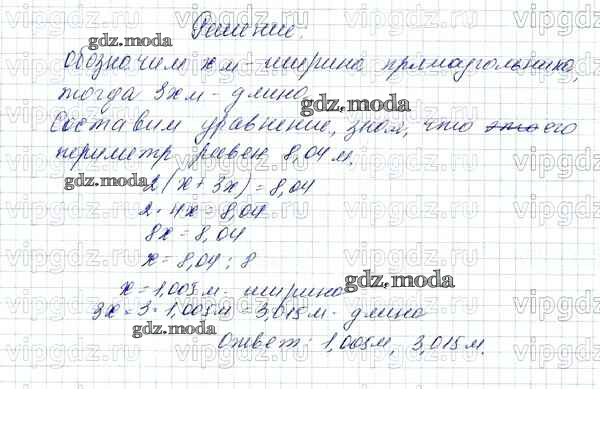 Решение.
Обозначим x м - ширина прямоугольника,
тогда 3x м - длина.
Составим уравнение, зная, что его
периметр равен 8,04 м.
2(x + 3x) = 8,04
2 · 4x = 8,04
8x = 8,04
x = 8,04 : 8
x = 1,005 м - ширина
3x = 3 · 1,005 м = 3,015 м - длина
Ответ: 1,005 м, 3,015 м.
gdz.moda
gdz.moda
gdz.moda
gdz.moda
gdz.moda
vipgdz.ru